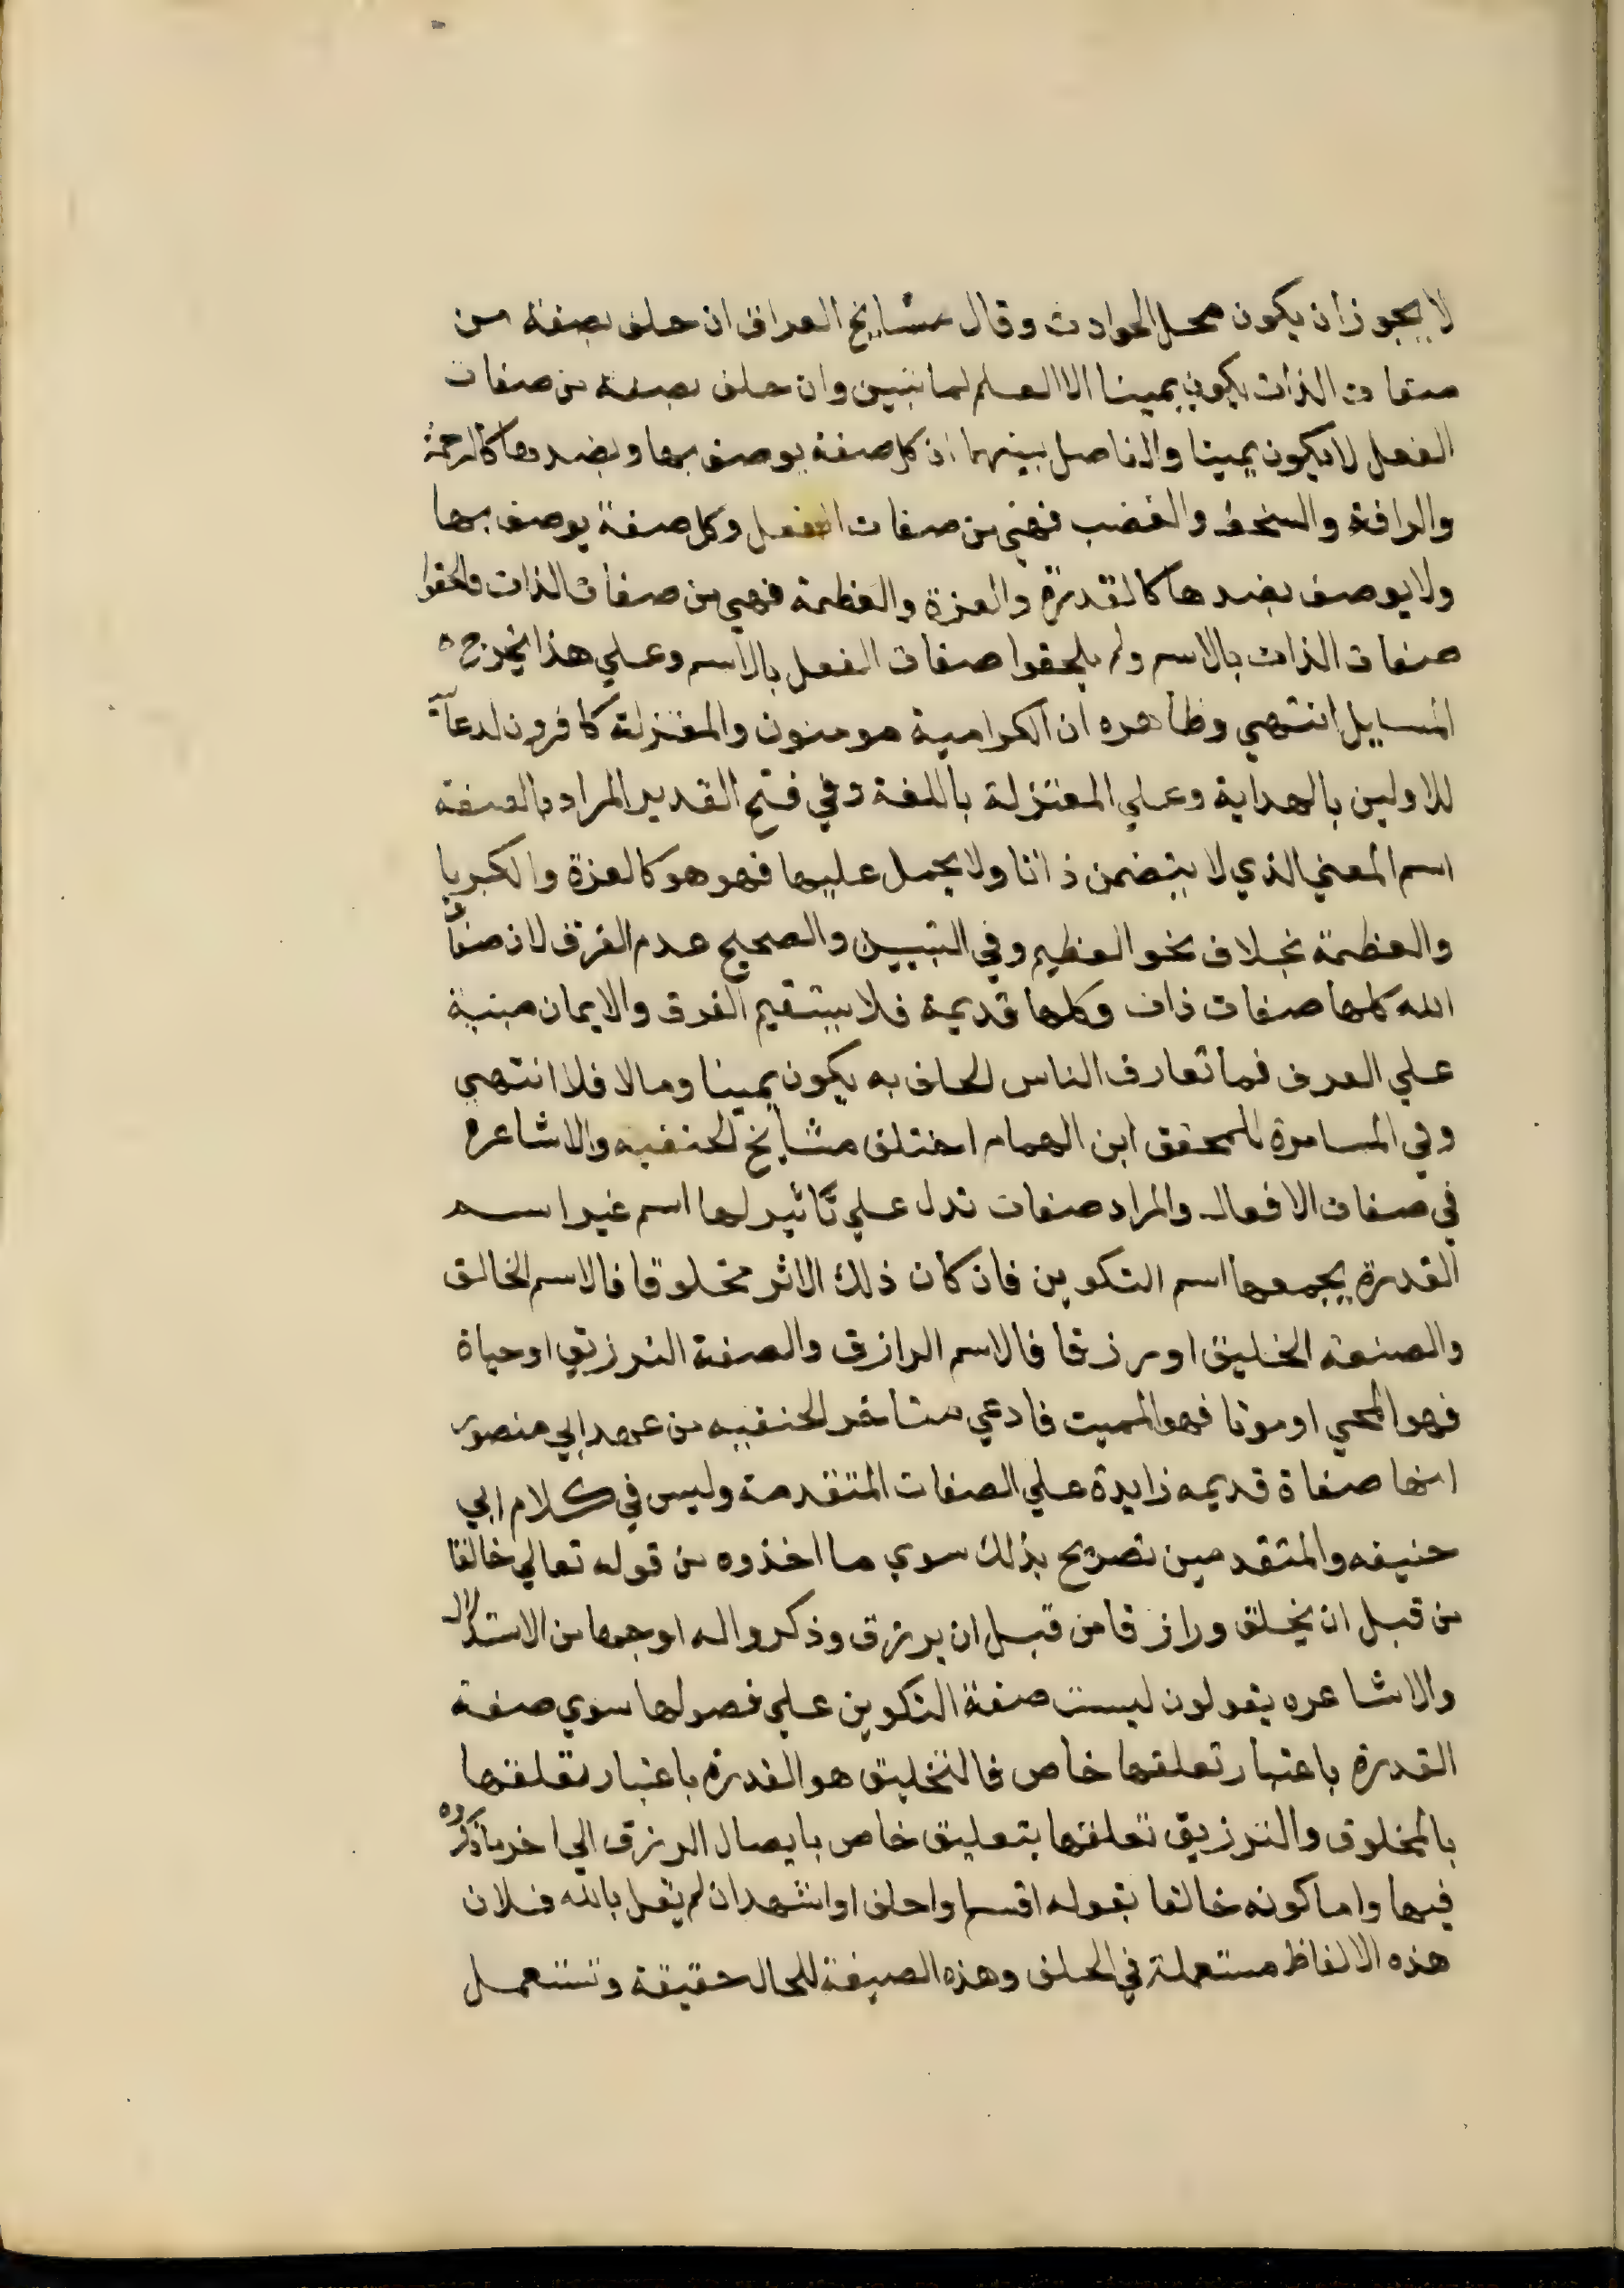 لا يجوز ان يكون محل الحوادث وقال مشايخ العراق ان حلف بصفة من
صفات الذات يكون يمينا الا العلم لما نبين وان حلف بصفة من صفات
الفعل لا يكون يمينا والفاصل بينهما ان كل صفة يوصف بها وبضدها كالرحمة
والرافة والسخط والغضب فهي من صفات الفعل وكل صفة يوصف بها
ولا يوصف بضدها كالقدرة والعزة والعظمة فهي من صفات الذات والحقوا
صفات الذات بالاسم ولم يلحقوا صفات الفعل بالاسم وعلي هذا يخرج
المسايل انتهي وظاهره ان الكرامية مومنون والمعتزلة كافرون لدعائه
للاولين بالهداية وعلي المعتزلة باللعنة وفي فتح القدير المراد بالصفة
اسم المعني الذي لا يتضمن ذاتا ولا يحمل عليها فهو هو كالعزة والكبريا
والعظمة بخلاف نحو العظيم وفي التبيين والصحيح عدم الفرق لان صفات
الله كلها صفات ذات وكلها قديمة فلا يستقيم الفرق والايمان مبنية
علي العرف فما تعارف الناس الحلف به يكون يمينا وما لا فلا انتهي
وفي المسامرة للمحقق ابن الهمام اختلف مشايخ الحنفيه والاشاعرة
في صفات الافعال والمراد صفات تدل علي تاثير لها اسم غير اسم
القدرة يجمعها اسم التكوين فان كان ذلك الاثر مخلوقا فالاسم الخالق
والصفة الخليق او رزقا فالاسم الرازق والصفة الترزيق او حياة
فهو المحي او موتا فهو المميت فادعي متاخر الحنفيه من عهد ابي منصور
انها صفاة قديمه زايدة علي الصفات المتقدمة وليس في كلام ابي
حنيفه والمتقدمين تصريح بذلك سوي ما اخذوه من قوله تعالي خالقا
من قبل ان يخلق ورازقا من قبل ان يرزق وذكروا له اوجها من الاستدلال
والاشاعره يقولون ليست صفة التكوين علي فصولها سوي صفة
القدرة باعتبار تعلقها خاص فالتخليق هو القدرة باعتبار تعلقها
بالمخلوق والترزيق تعلقها بتعليق خاص بايصال الرزق الي اخر ما ذكروه
فيها واما كونه خالفا بقوله اقسم واحلف او اشهد ان لم يقل بالله فلان
هذه الالفاظ مستعملة في الحلف وهذه الصيغة للحال حقيقة وتستعمل